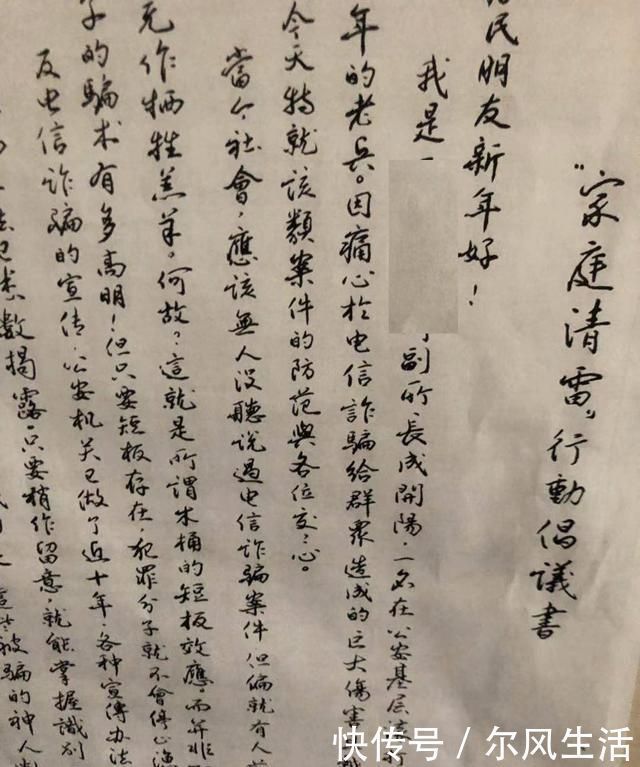 “家庭清雷”行動倡議書
民朋友新年好！
我是
副所長成開陽，一名在公安基层
年的老兵。因痛心於电信詐騙给群衆造成的巨大傷害
今天特就该類案件的防范與各位交交心。
當今社會，應该無人没聽说過电信诈骗案件但偏就有人
充作牺牲羔羊。何故？這就是所謂木桶的短板效應。而并非
子的騙术有多高明！但只要短板存在，犯罪分子就不會停止
反电信诈骗的宣传，公安机关已做了近十年，各种宣傳办法
已悉数揭露，只要稍作留意，就能掌握識别
這些被骗的神人
快传号／尔风生活